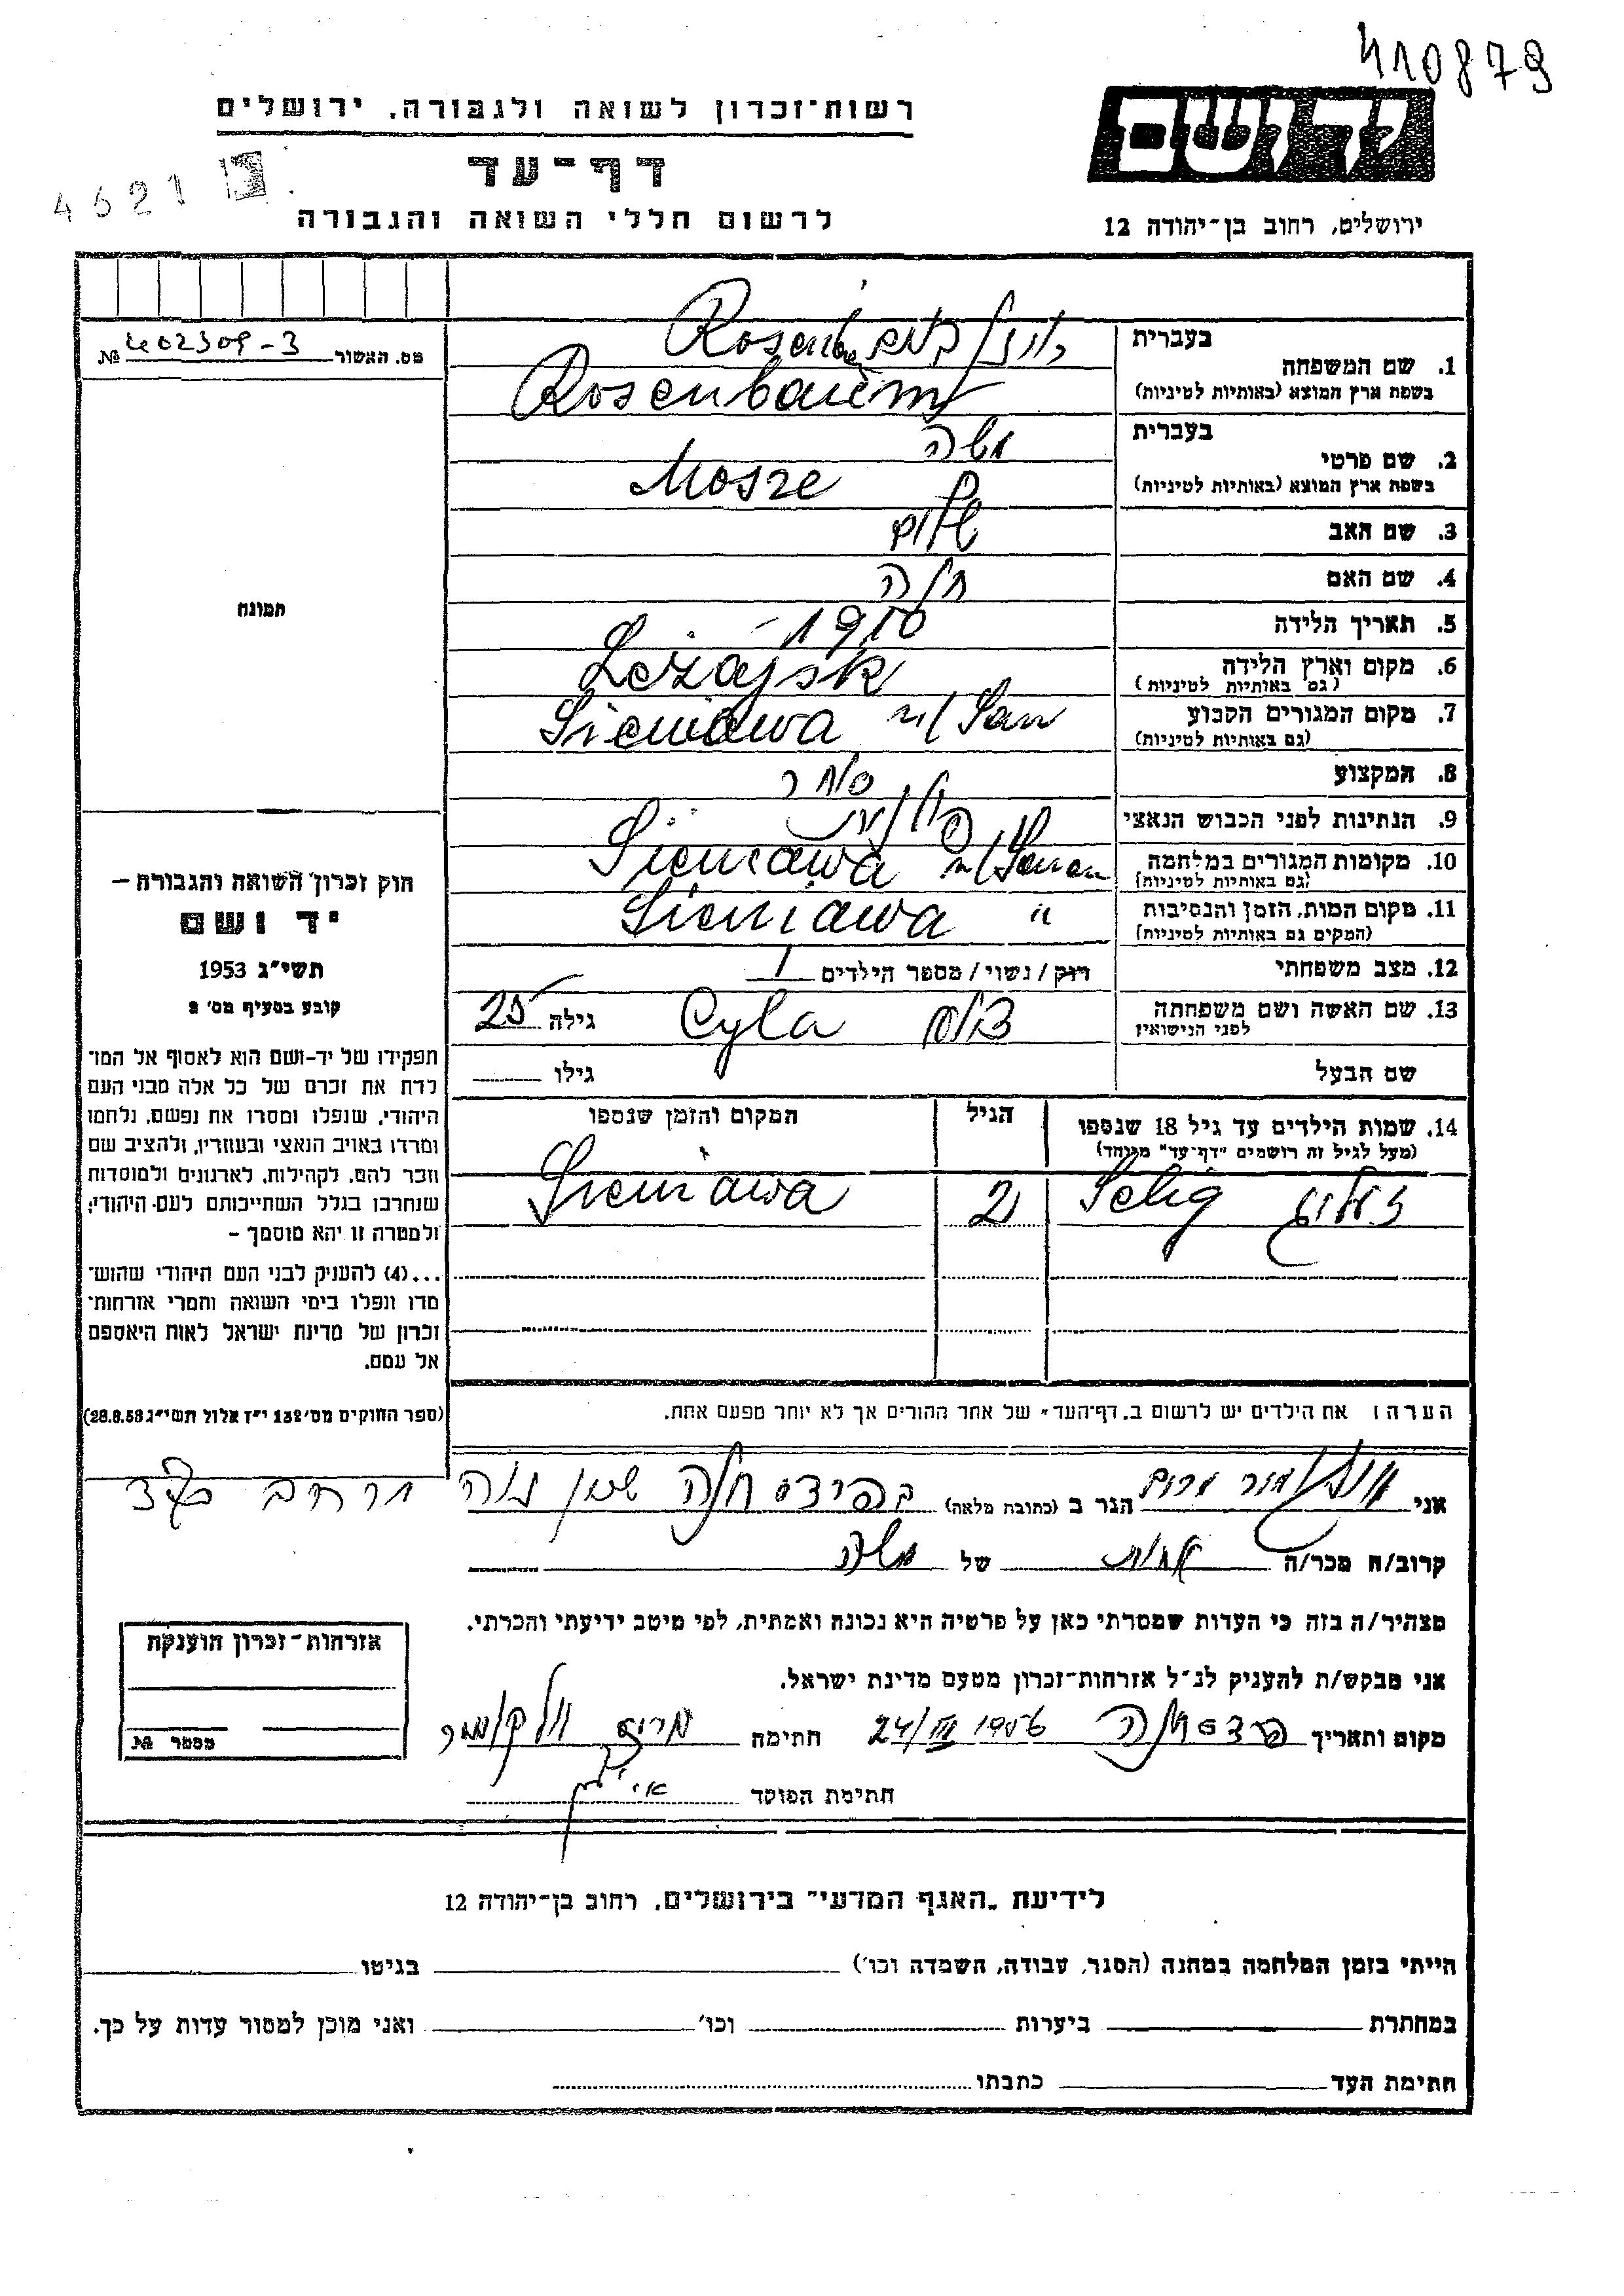 410879
רשות־זכרון לשואה ולגבורה, ירושלים
יד ושם
דף־עד
4621
לרשום חללי השואה והגבורה
ירושלים, רחוב בן־יהודה 12
מס. האשור 402309-3 №
בעברית
Rosenb
1. שם המשפחה
בשפת ארץ המוצא (באותיות לטיניות)
Rosenbaum
בעברית משה
2. שם פרטי
בשפת ארץ המוצא (באותיות לטיניות)
Mosze
3. שם האב שלום
4. שם האם חלה
5. תאריך הלידה 1910
6. מקום וארץ הלידה Leżajsk
(גם באותיות לטיניות)
7. מקום המגורים הקבוע Sieniawa n/San
(גם באותיות לטיניות)
8. המקצוע סוחר
9. הנתינות לפני הכבוש הנאצי
10. מקומות המגורים במלחמה Sieniawa n/Sanem
(גם באותיות לטיניות)
11. מקום המות, הזמן והנסיבות Sieniawa "
(המקים גם באותיות לטיניות)
12. מצב משפחתי רוק / נשוי / מספר הילדים 1
13. שם האשה ושם משפחתה Cyla גילה 25
לפני הנישואין
שם הבעל גילו
14. שמות הילדים עד גיל 18 שנספו הגיל המקום והזמן שנספו
(מעל לגיל זה רושמים "דף־עד" מיוחד)
זעליג Selig 2 Sieniawa
הערה: את הילדים יש לרשום ב„דף־העד" של אחד ההורים אך לא יותר מפעם אחת.
תמונה
חוק זכרון השואה והגבורה –
יד ושם
תשי"ג 1953
קובע בסעיף מס' 2
תפקידו של יד-ושם הוא לאסוף אל המו־
לדת את זכרם של כל אלה מבני העם
היהודי, שנפלו ומסרו את נפשם, נלחמו
ומרדו באויב הנאצי ובעוזריו, ולהציב שם
וזכר להם, לקהילות, לארגונים ולמוסדות
שנחרבו בגלל השתייכותם לעם היהודי;
ולמטרה זו יהא מוסמך –
...(4) להעניק לבני העם היהודי שהוש־
מדו ונפלו בימי השואה והמרי אזרחות־
זכרון של מדינת ישראל לאות היאספם
אל עמם.
(ספר החוקים מס' 132 י"ז אלול תשי"ג 28.8.53)
אני הגר ב (כתובת מלאה) בפרדס חנה
קרוב/ה מכר/ה אחות של משה
מצהיר/ה בזה כי העדות שמסרתי כאן על פרטיה היא נכונה ואמתית, לפי מיטב ידיעתי והכרתי.
אני מבקש/ת להעניק לנ"ל אזרחות־זכרון מטעם מדינת ישראל.
מקום ותאריך פרדס חנה 24/III 1956 חתימה
חתימת הפוקד
אזרחות־זכרון הוענקה
מספר №
לידיעת „האגף המדעי" בירושלים, רחוב בן־יהודה 12
הייתי בזמן המלחמה במחנה (הסגר, עבודה, השמדה וכו') בגיטו
במחתרת ביערות וכו' ואני מוכן למסור עדות על כך.
חתימת העד כתבתו